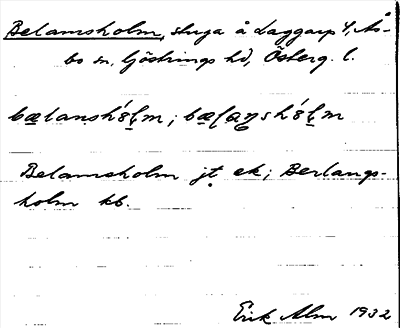 Belamsholm, stuga å Laggarp 4, Ås-
bo sn, Göstrings hd, Österg. l.
bælanshó̤lm; bælaŋshó̤lm
Belamsholm jt ek; Berlangs-
holm kb.
Erik Alm 1932